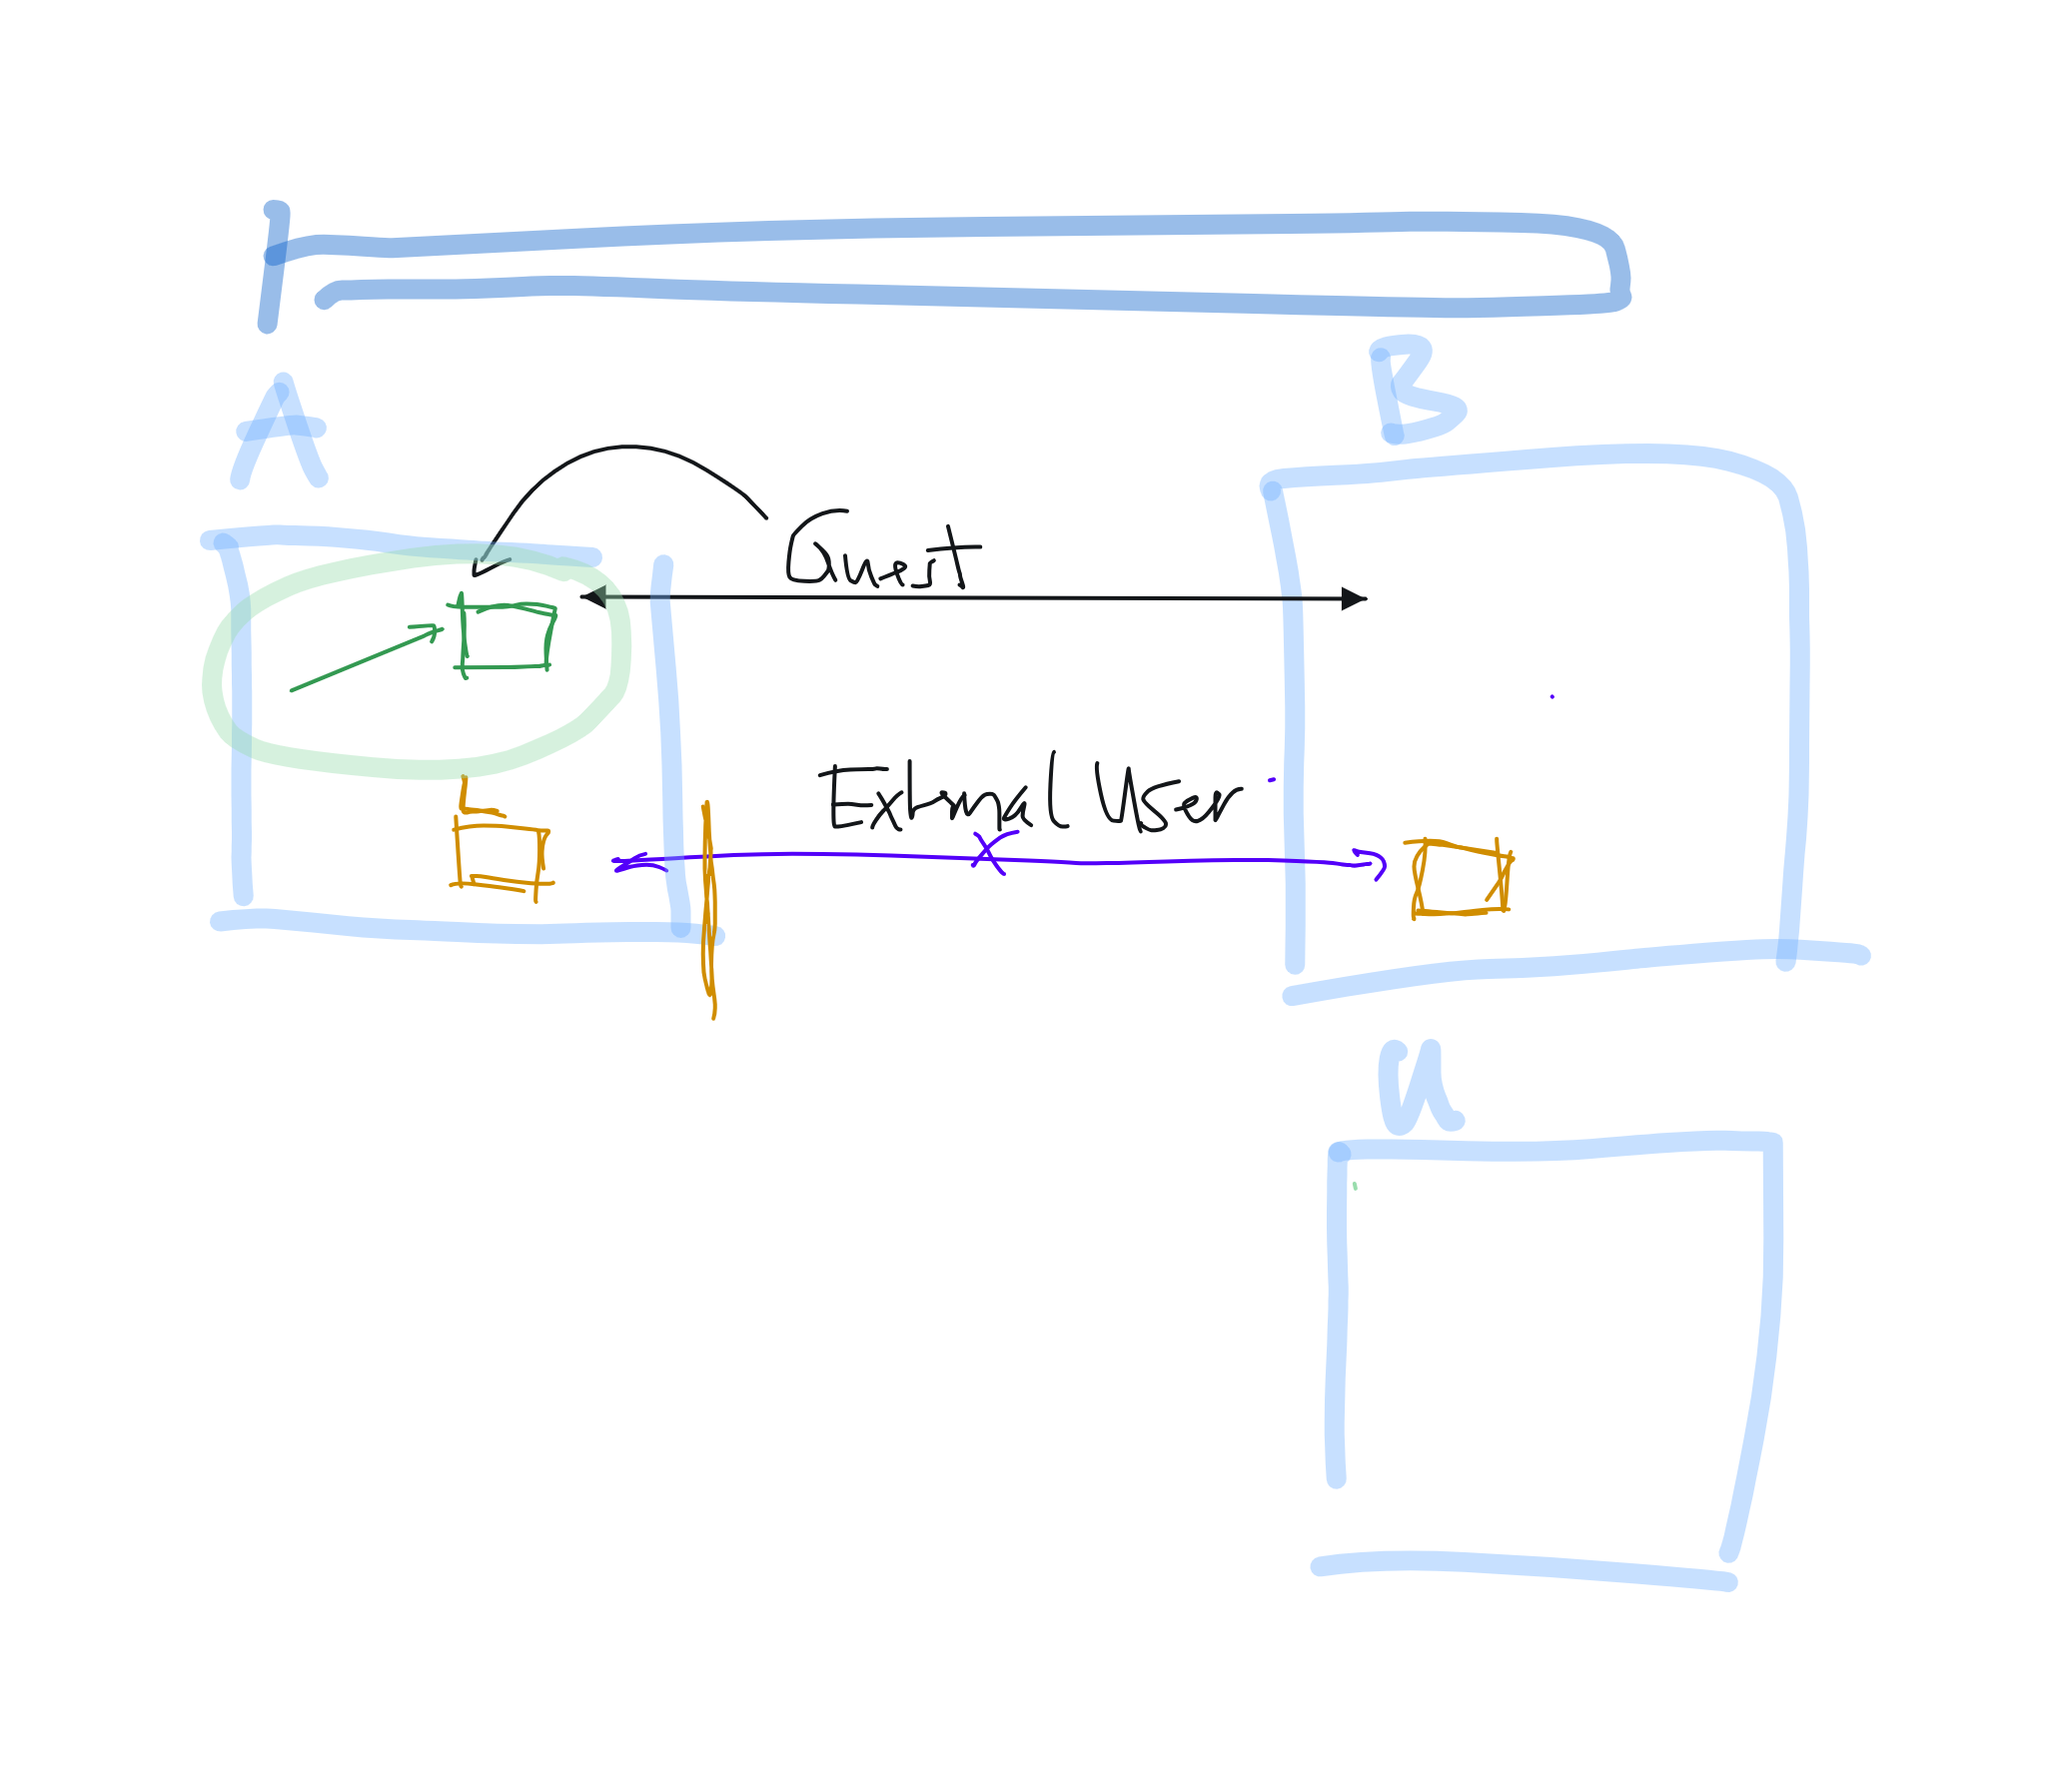 A
B
Guest
External User